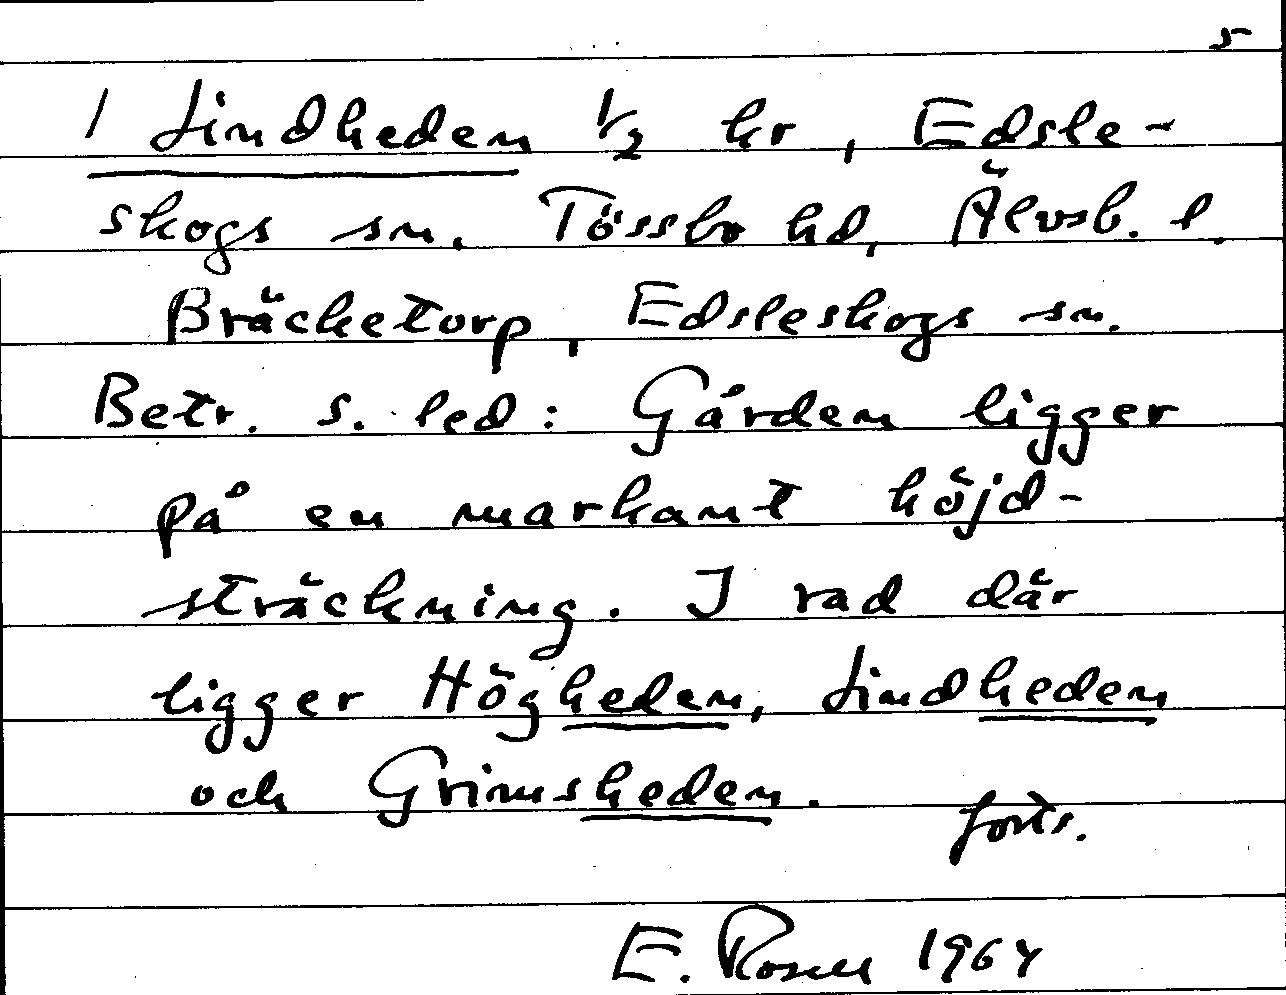 5
1 Lindheden 1/2 kr, Edsle-
skogs sn. Tössbo hd, Älvsb. l.
Bräcketorp, Edsleskogs sn.
Betr. s. led: Gården ligger
på en markant höjd-
sträckning. I rad där
ligger Högheden, Lindheden
och Grimsheden. forts.
E. Rosell 1964